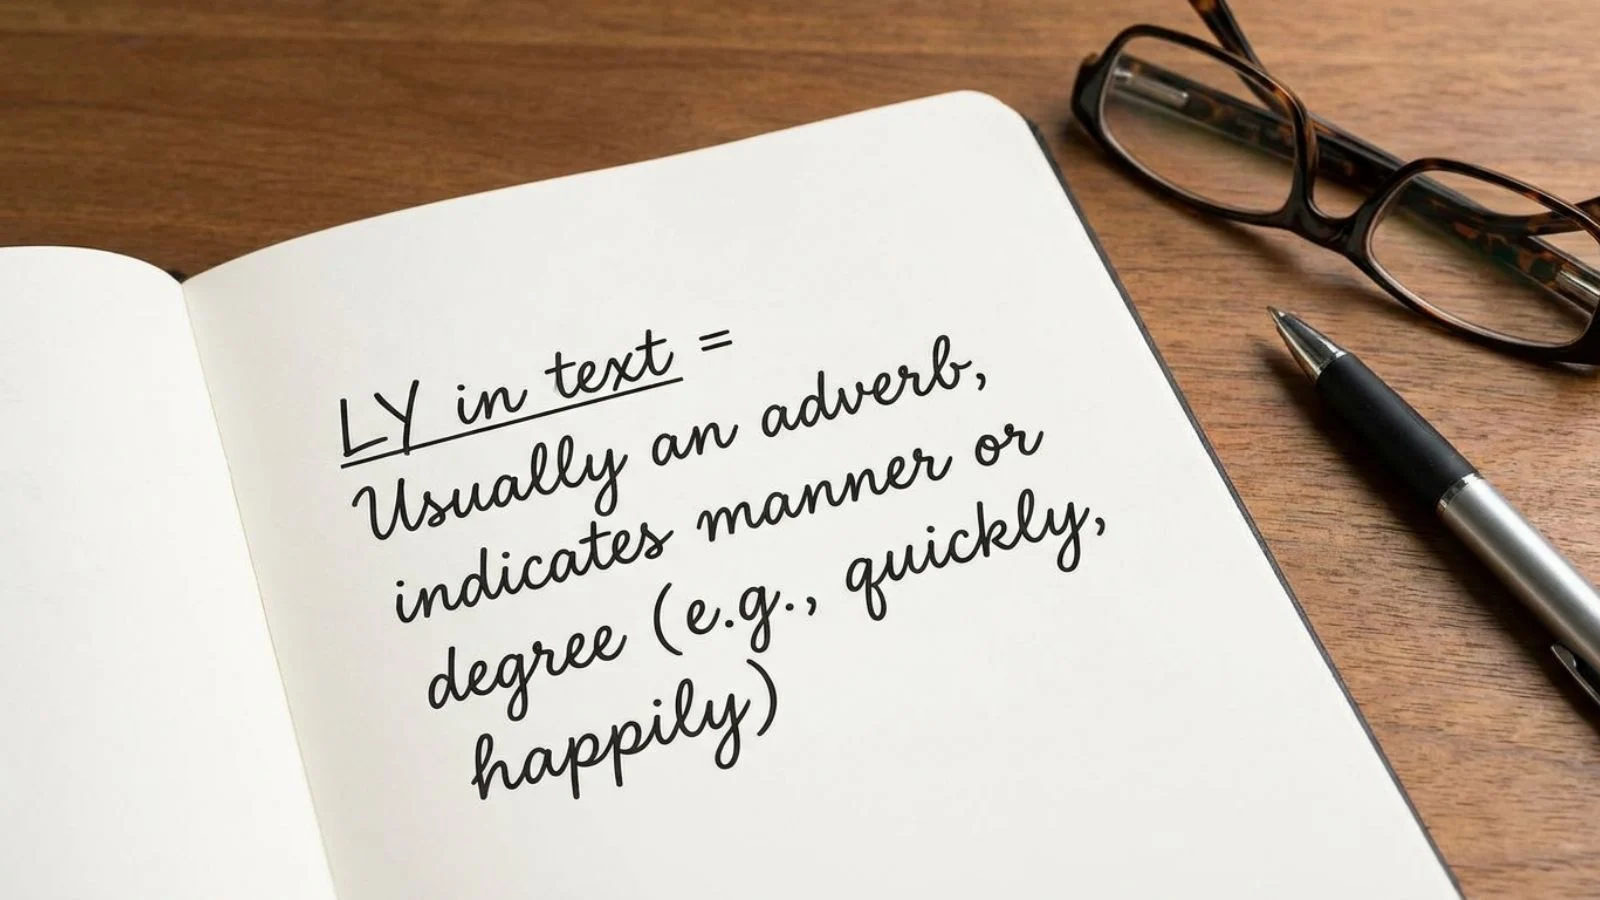 LY in text =
Usually an adverb,
indicates manner or
degree (e.g., quickly,
happily)